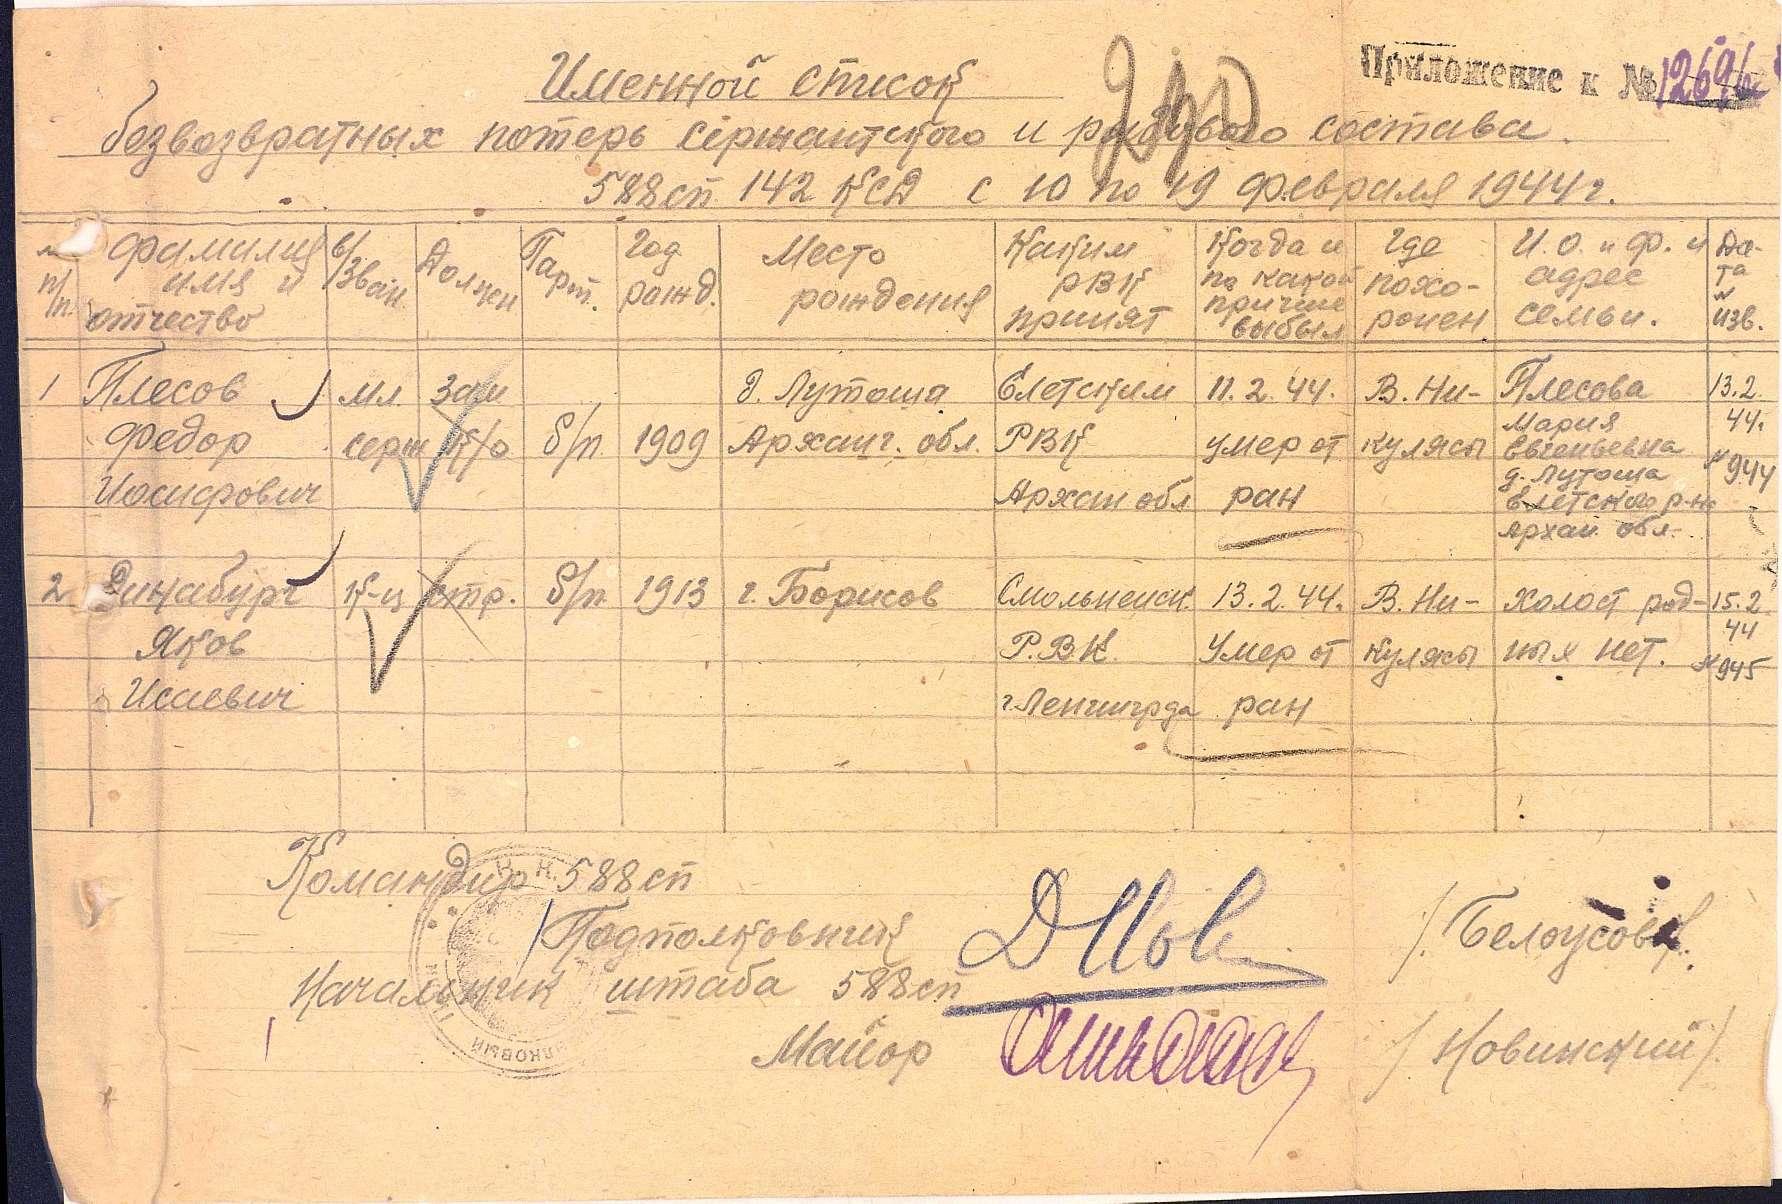 Приложение к № 1269
Именной список
безвозвратных потерь сержантского и рядового состава.
588 сп 142 КСД с 10 по 19 февраля 1944 г.
№ п/п. Фамилия имя и отчество в/зван. Должн Парт. Год рожд. Место рождения Каким РВК принят Когда и по какой причине выбыл Где похоронен И. О. и Ф. и адрес семьи. Дата и № изв.
1 Плесов мл. Зам д. Лутоша Елетским 11.2.44. В. Ни- Плесова 13.2
Федор серж к/о б/п 1909 Арханг. обл. РВК умер от кулясы Мария 44.
Евгеньевна
Иосифович Архан обл ран д. Лутоша №944
Елетского р-на
Архан. обл.
2 Динабург к-ц стр. б/п 1913 г. Борисов Смольненск. 13.2.44. В. Ни- Холост род- 15.2
44
Яков Р.В.К. Умер от кулясы ных нет. №945
Исаевич г. Ленинграда ран
Командир 588 сп
Подполковник /Белоусов/.
Начальник штаба 588 сп
Майор /Новинский/.